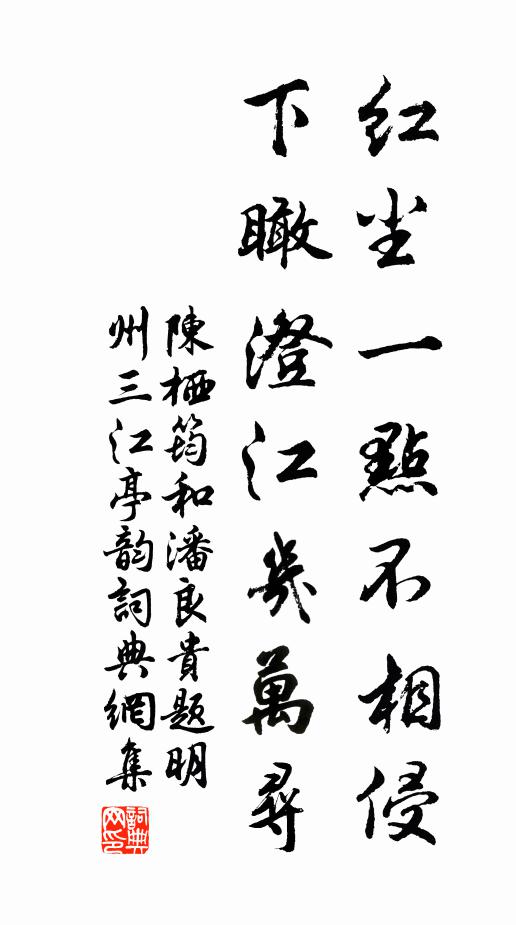 紅塵一點不相侵
下瞰澄江幾萬尋
陳栖筠和潘良貴題明
州三江亭韵詞典網集
詞典网印